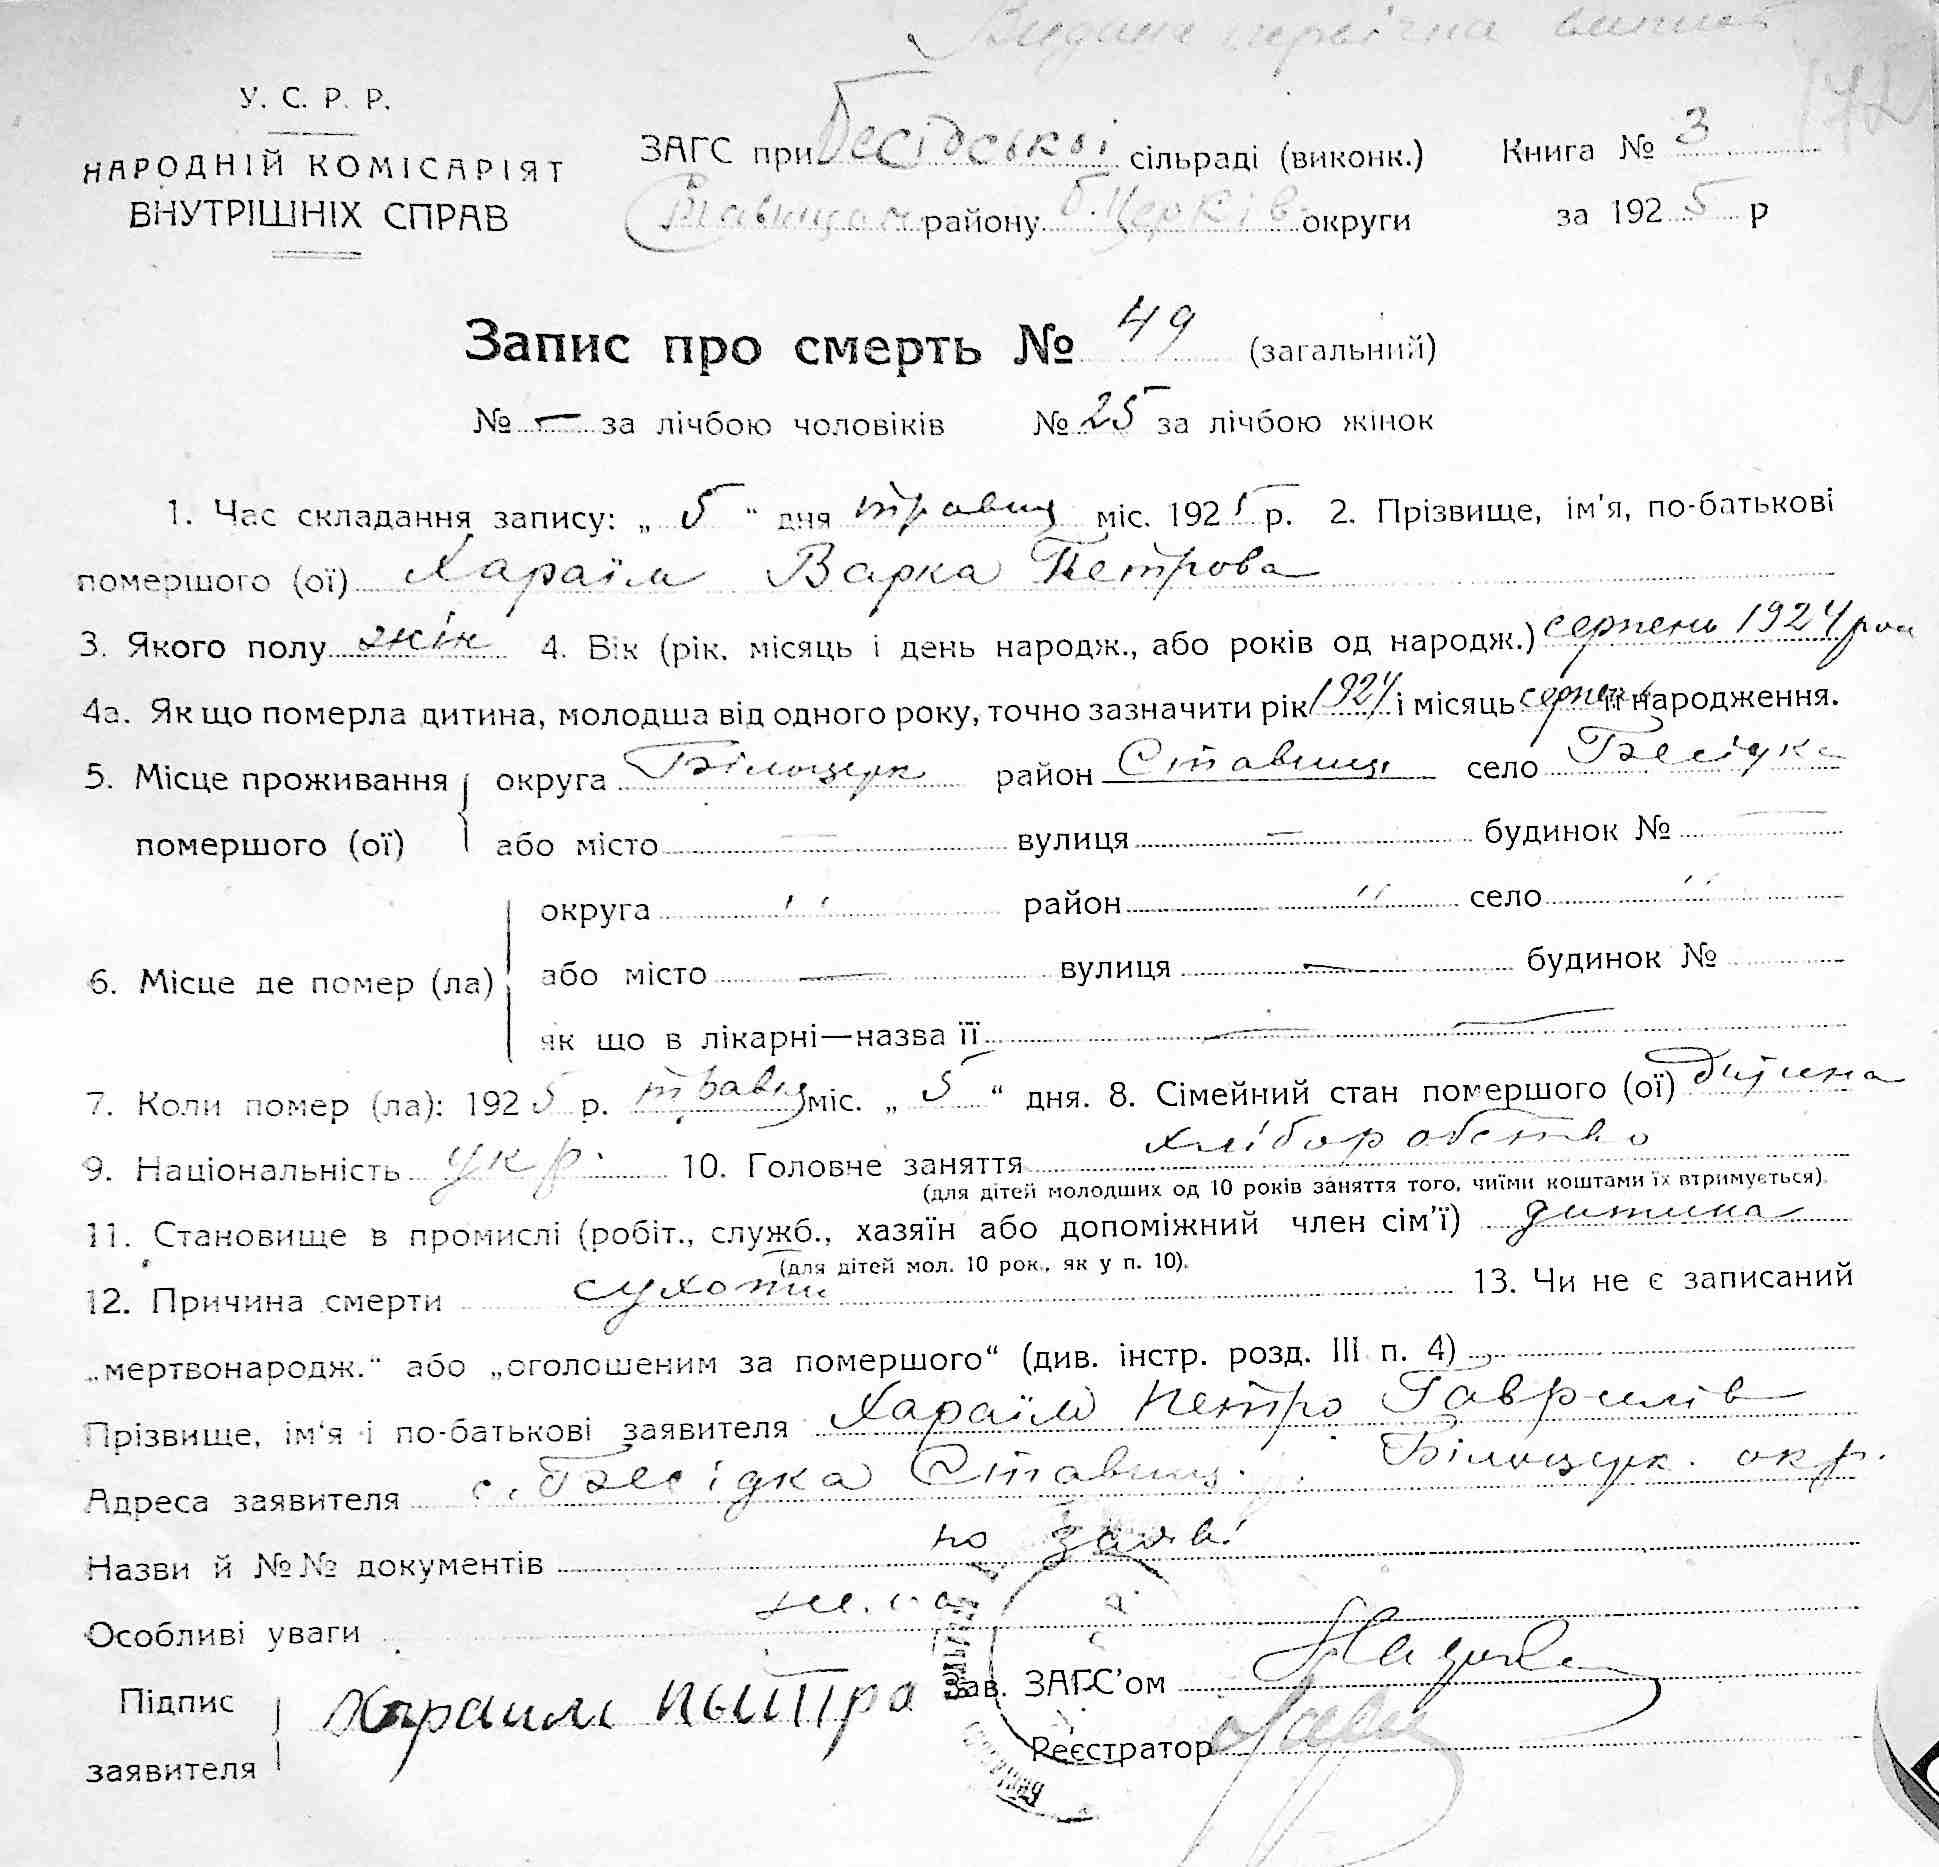 Видана первічна випис
172
У. С. Р. Р.
НАРОДНІЙ КОМІСАРІЯТ
ВНУТРІШНІХ СПРАВ
ЗАГС при Бесідській сільраді (виконк.)
Ставищан району Б. Церків округи
Книга № 3
за 1925 р
Запис про смерть № 49 (загальний)
№ — за лічбою чоловіків № 25 за лічбою жінок
1. Час складання запису: „ 5 “ дня травня міс. 1925 р. 2. Прізвище, ім'я, по-батькові
помершого (ої) Хараїм Варка Петрова
3. Якого полу жін 4. Вік (рік, місяць і день народж., або років од народж.) серпень 1924 рок
4а. Як що померла дитина, молодша від одного року, точно зазначити рік 1924 і місяць серпень її народження.
5. Місце проживання помершого (ої) округа Білоцерк район Ставищ село Бесідка
або місто — вулиця — будинок № —
6. Місце де помер (ла) округа " район " село "
або місто — вулиця — будинок №
як що в лікарні—назва її — —
7. Коли помер (ла): 1925 р. травня міс. „ 5 “ дня. 8. Сімейний стан помершого (ої) дитина
9. Національність укр. 10. Головне заняття хліборобство
(для дітей молодших од 10 років заняття того, чиїми коштами їх втримується).
11. Становище в промислі (робіт., служб., хазяїн або допоміжний член сім'ї) дитина
(для дітей мол. 10 рок., як у п. 10).
12. Причина смерти сухоти 13. Чи не є записаний
„мертвонародж.“ або „оголошеним за помершого“ (див. інстр. розд. III п. 4)
Прізвище, ім'я і по-батькові заявителя Хараїм Петро Гаврилів
Адреса заявителя с. Бесідка Ставищ. р. Білоцерк. окр.
Назви й №№ документів по заяві
Особливі уваги нема
Підпис заявителя Хараим Пытро
Зав. ЗАГС'ом
Реєстратор